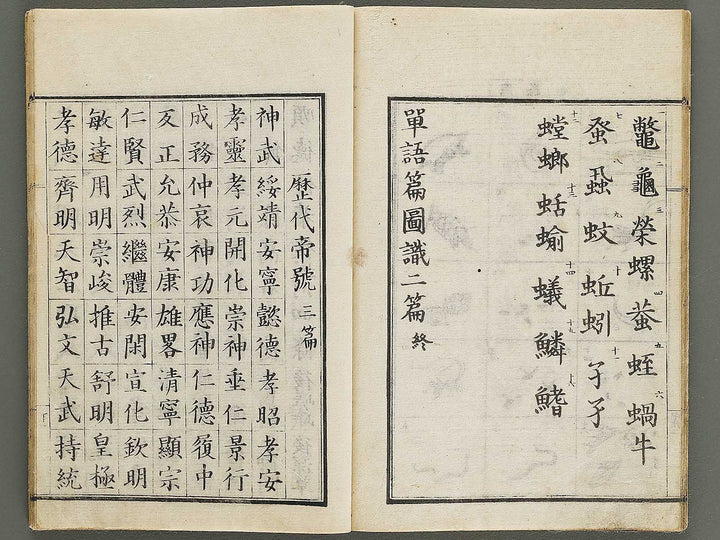 鼈 龜 榮螺 蛭 蝸牛
蚤 蝨 蚊 蚯蚓 孑孑
螳螂 蛞蝓 蟻 鱗 鰭
單語篇圖識二篇 終
歷代帝號 三篇
神武 綏靖 安寧 懿德 孝昭 孝安
孝靈 孝元 開化 崇神 垂仁 景行
成務 仲哀 神功 應神 仁德 復中
反正 允恭 安康 雄畧 清寧 顯宗
仁賢 武烈 繼體 安閑 宣化 欽明
敏達 用明 崇峻 推古 舒明 皇極
孝德 齊明 天智 弘文 天武 持統